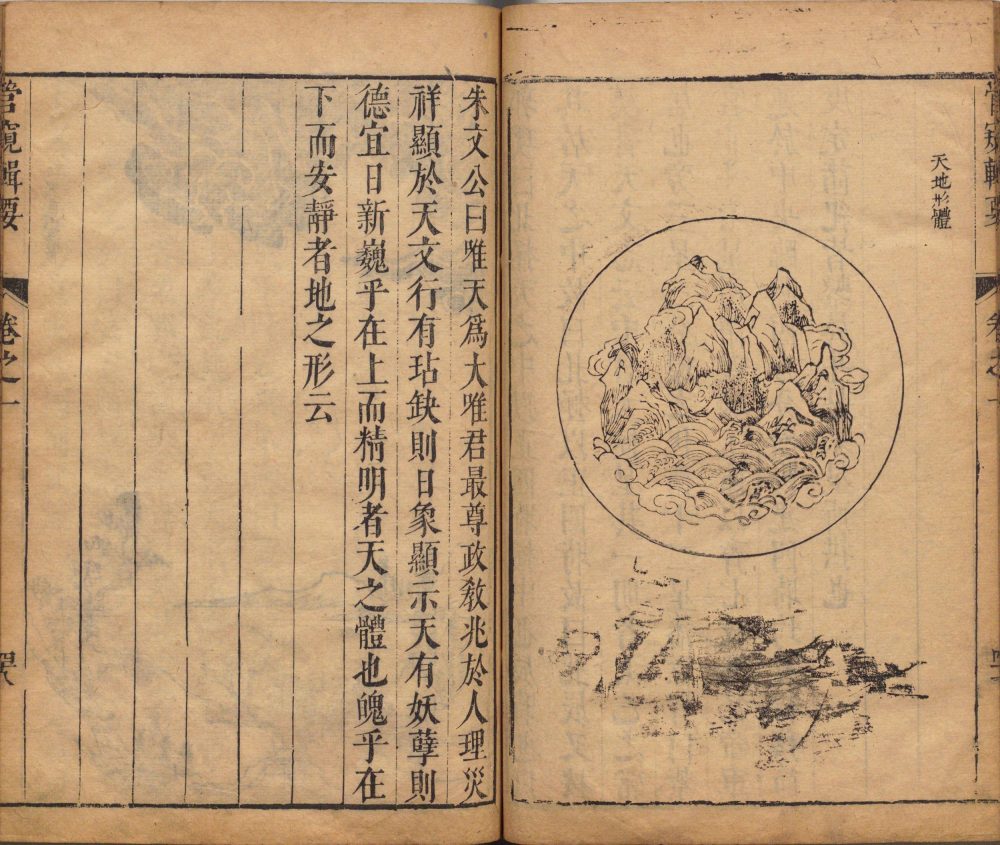 管窺輯要 卷之一
天地形體
朱文公曰唯天爲大唯君最尊政敎兆於人理災
祥顯於天文行有玷缺則日象顯示天有妖孽則
德宜日新巍乎在上而精明者天之體也魄乎在
下而安靜者地之形云
管窺輯要 卷之一